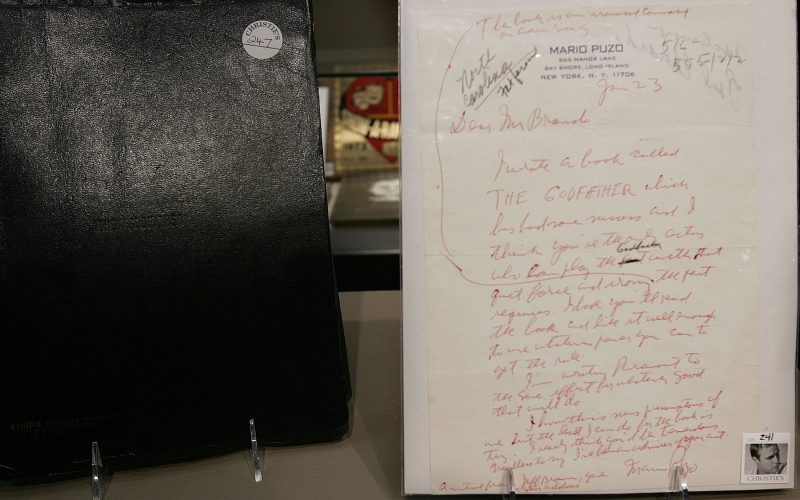 CHRISTIE'S
247
The book is an ironical comment
on
society
MARIO PUZO
866 MANOR LANE
BAY SHORE, LONG ISLAND
NEW YORK, N. Y. 11706
North
Carolina
Jan 23
Dear Mr Brando
I wrote a book called
THE GODFATHER which
has had some success and I
think you're the only actor
who can play the Godfather with that
quiet force and irony the part
requires. I hope you'll read
the book and like it well enough
to use whatever power you can to
get the role.
I'm writing Paramount to
the same effect for whatever good
that will do.
I know this was presumptuous of
me but the best I can do for the book is
try. I really think you'd be tremendous.
Needless to say I've been an admirer of your art.
Mario Puzo
A mutual friend, Jeff Brown, gave
address
241
CHRISTIE'S
STUDIO